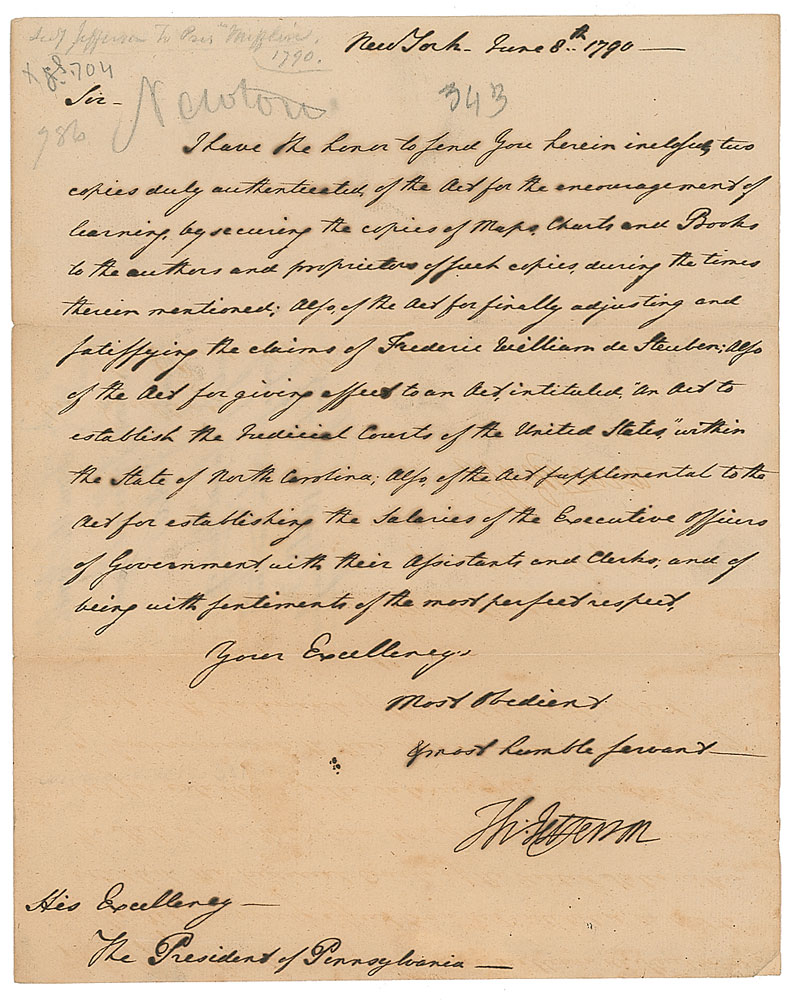 Secy Jefferson To Pres. Mifflin,
1790.
New York - June 8th. 1790 —
704
Sir -
Newton
343
986
I have the honor to send You herein inclosed, two
copies duly authenticated, of the Act for the encouragement of
learning, by securing the copies of Maps, Charts and Books
to the authors and proprietors of such copies, during the times
therein mentioned; Also, of the Act for finally adjusting and
satisfying the claims of Frederic William de Steuben; Also
of the Act for giving effect to an Act, intituled, "An Act to
establish the Judicial Courts of the United States," within
the State of North Carolina; Also, of the Act supplemental to the
Act for establishing the Salaries of the Executive Officers
of Government, with their Assistants and Clerks; and of
being with sentiments of the most perfect respect,
Your Excellency's
Most Obedient
& most humble servant —
Th: Jefferson
His Excellency —
The President of Pennsylvania —